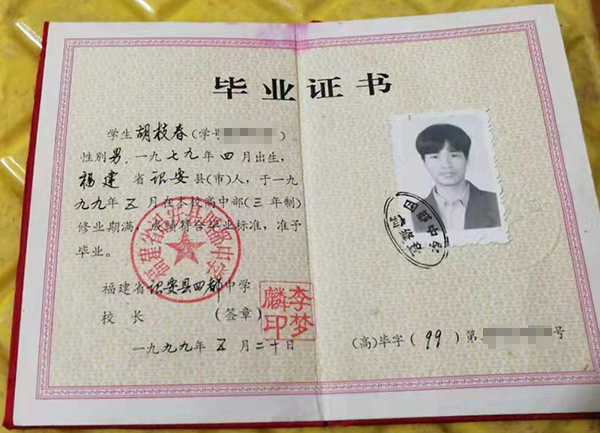 毕业证书
学生胡枝春(学号
)
性别男,一九七九年四月出生,
福建省诏安县(市)人,于一九
九九年五月在本校高中部(三年制)
修业期满,成绩符合毕业标准,准予
毕业。
福建省诏安县四都中学
校长
(签章)
李梦
麟印
一九九九年五月二十日
(高)毕字(99)第
号